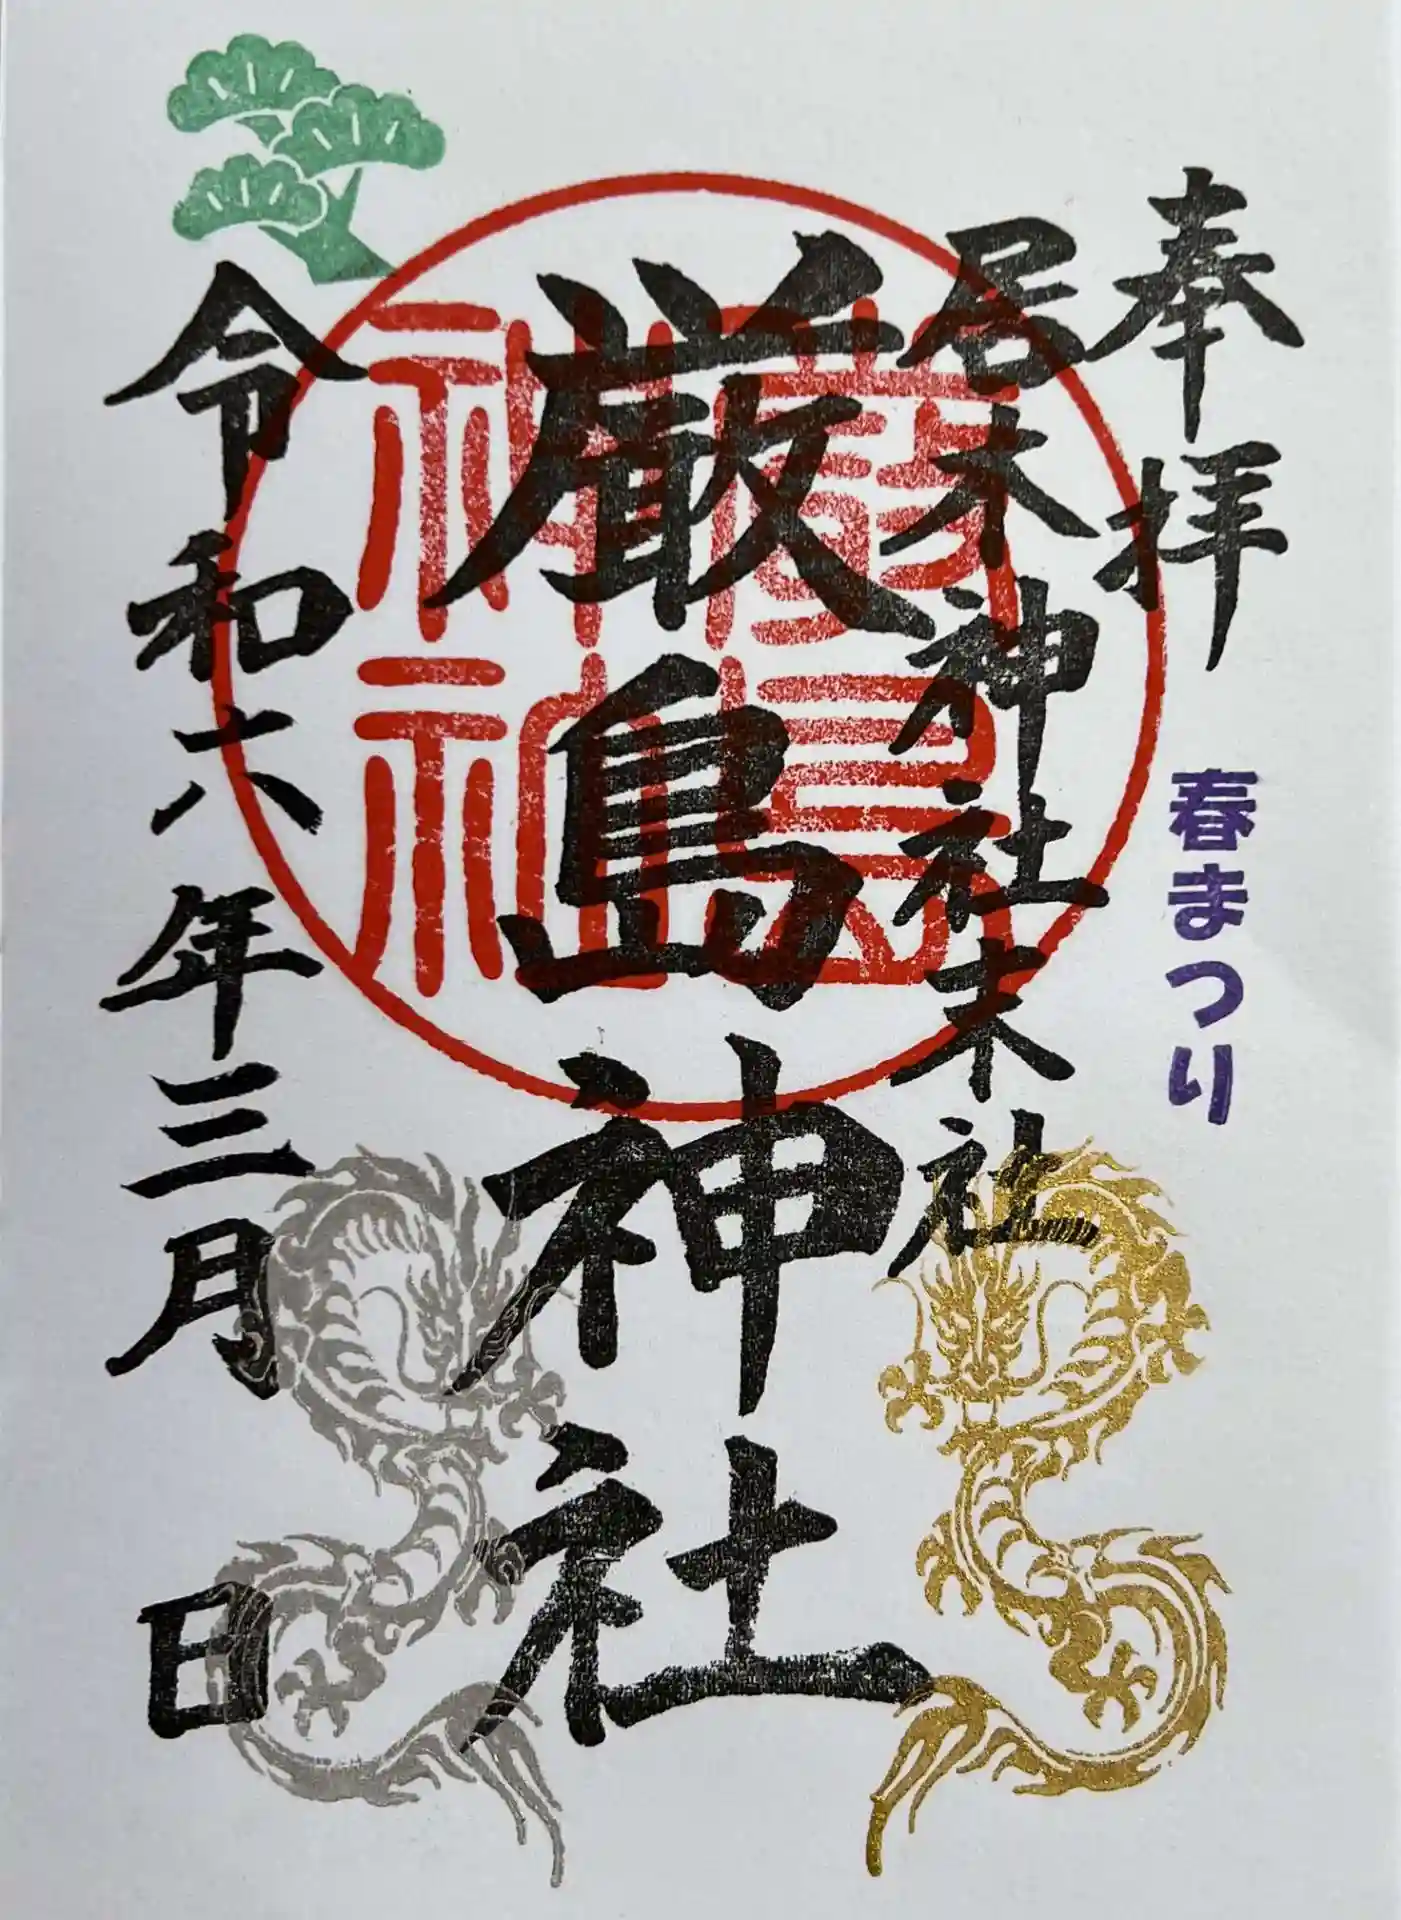 奉拝
春まつり
居木神社末社
厳島神社
嚴島神社
令和六年三月 日